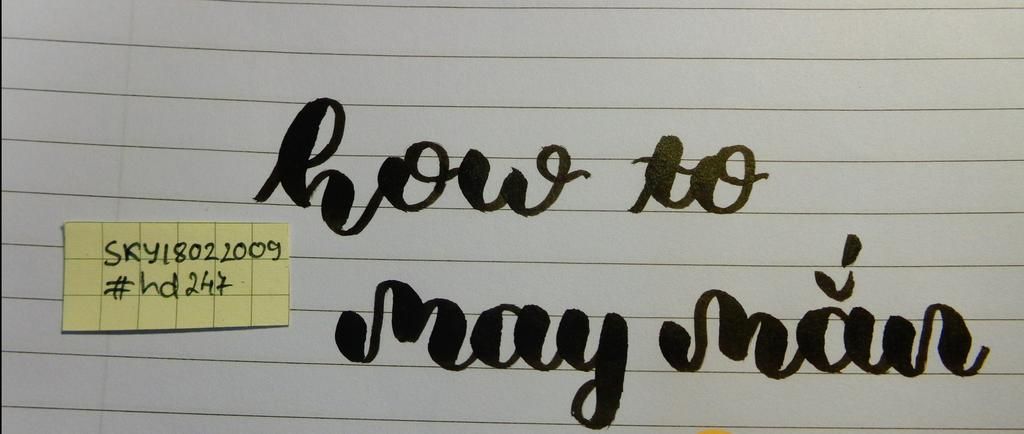 how to
SKY18022009
#hd247
may mắn